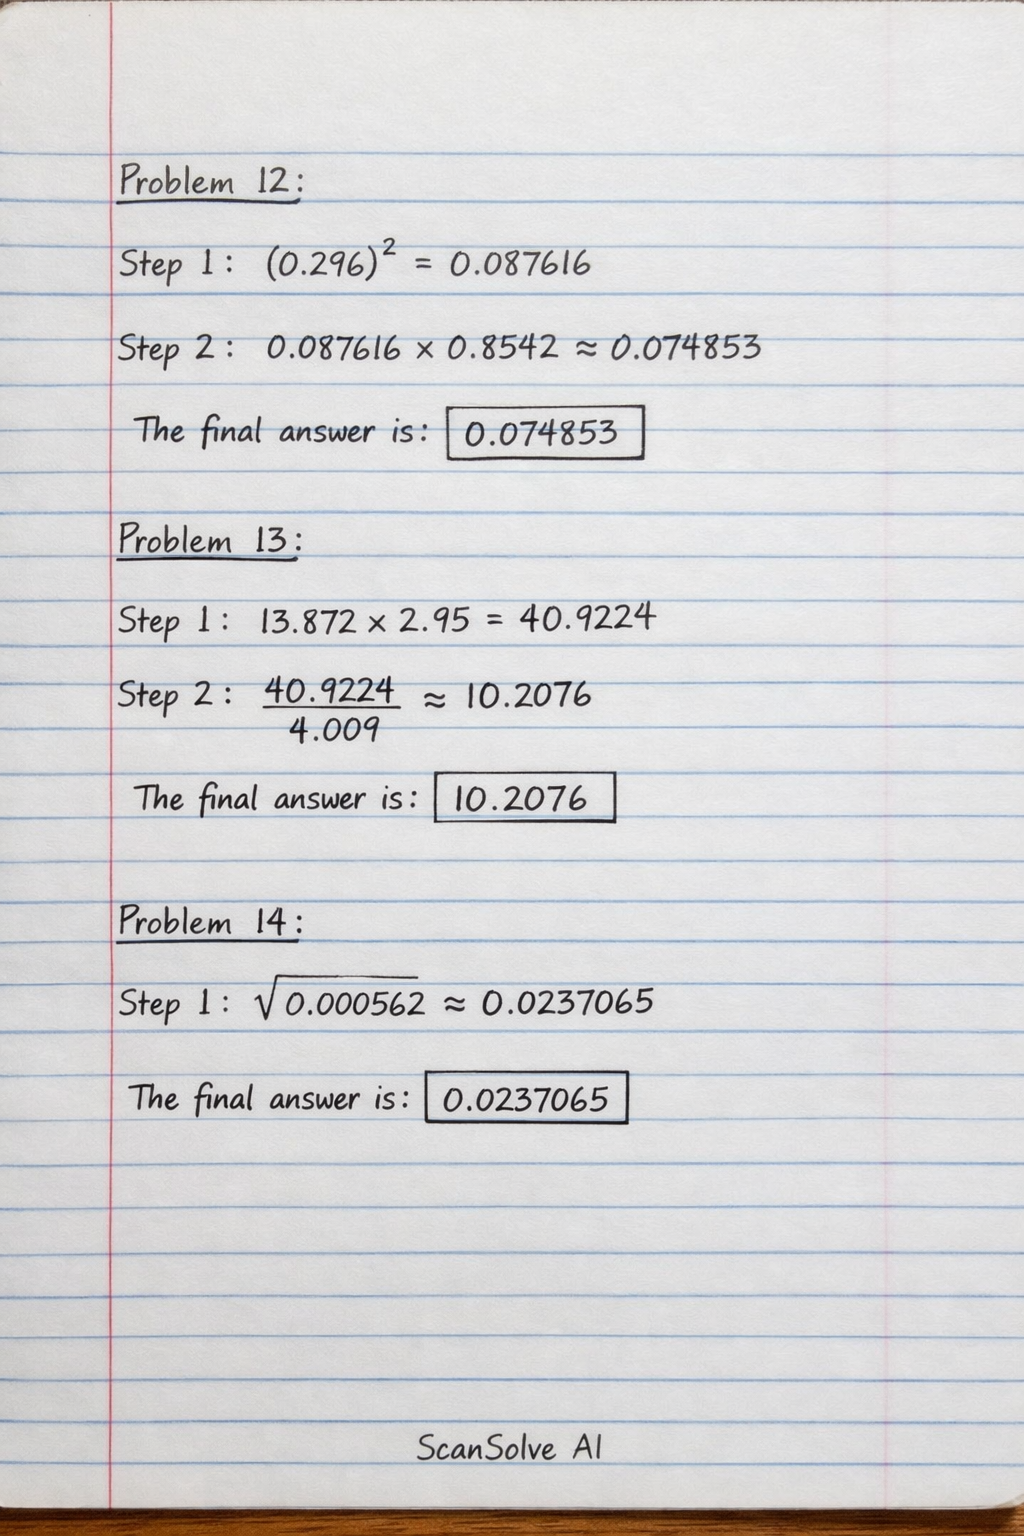 Problem 12:
Step 1: (0.296)² = 0.087616
Step 2: 0.087616 × 0.8542 ≈ 0.074853
The final answer is: 0.074853
Problem 13:
Step 1: 13.872 × 2.95 = 40.9224
Step 2: 40.9224 / 4.009 ≈ 10.2076
The final answer is: 10.2076
Problem 14:
Step 1: √0.000562 ≈ 0.0237065
The final answer is: 0.0237065
ScanSolve AI